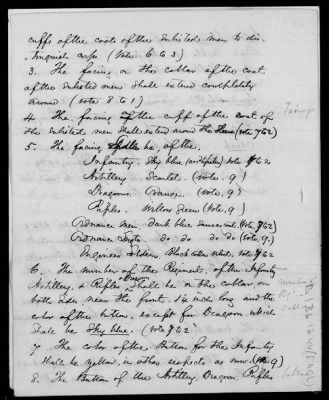 cuffs of the coats of the Inlisted men to dis-
-tinguish corps (Vote 6 to 3)
3. The facing on the collar of the coat
of the Inlisted men shall extend completely
around (vote 8 to 1)
4. The facing of the cuff of the coat of
the Inlisted men shall extend around the sleeve (vote 7 to 2)
5. The facing shall be, of the
Infantry - Sky blue
Artillery Scarlet. (vote. 9)
Dragoons Orange. (vote. 9)
Rifles. Willow Green (vote. 9)
Ordnance Men dark blue
Ordnance do do do do (vote 9.)
Engineer Soldiers Black
6. The number of the Regiment, of the Infantry
Artillery, & Rifles shall be on the collar, on
both sides near the front, six inch long and the
color of the button, except for Dragoon which
shall be Sky blue. (vote 7 to 2
7 The color of the Button for the Infantry
shall be yellow, in other respects as now. (9)
8. The Button of the Artillery, Dragoon, Rifles
Facings